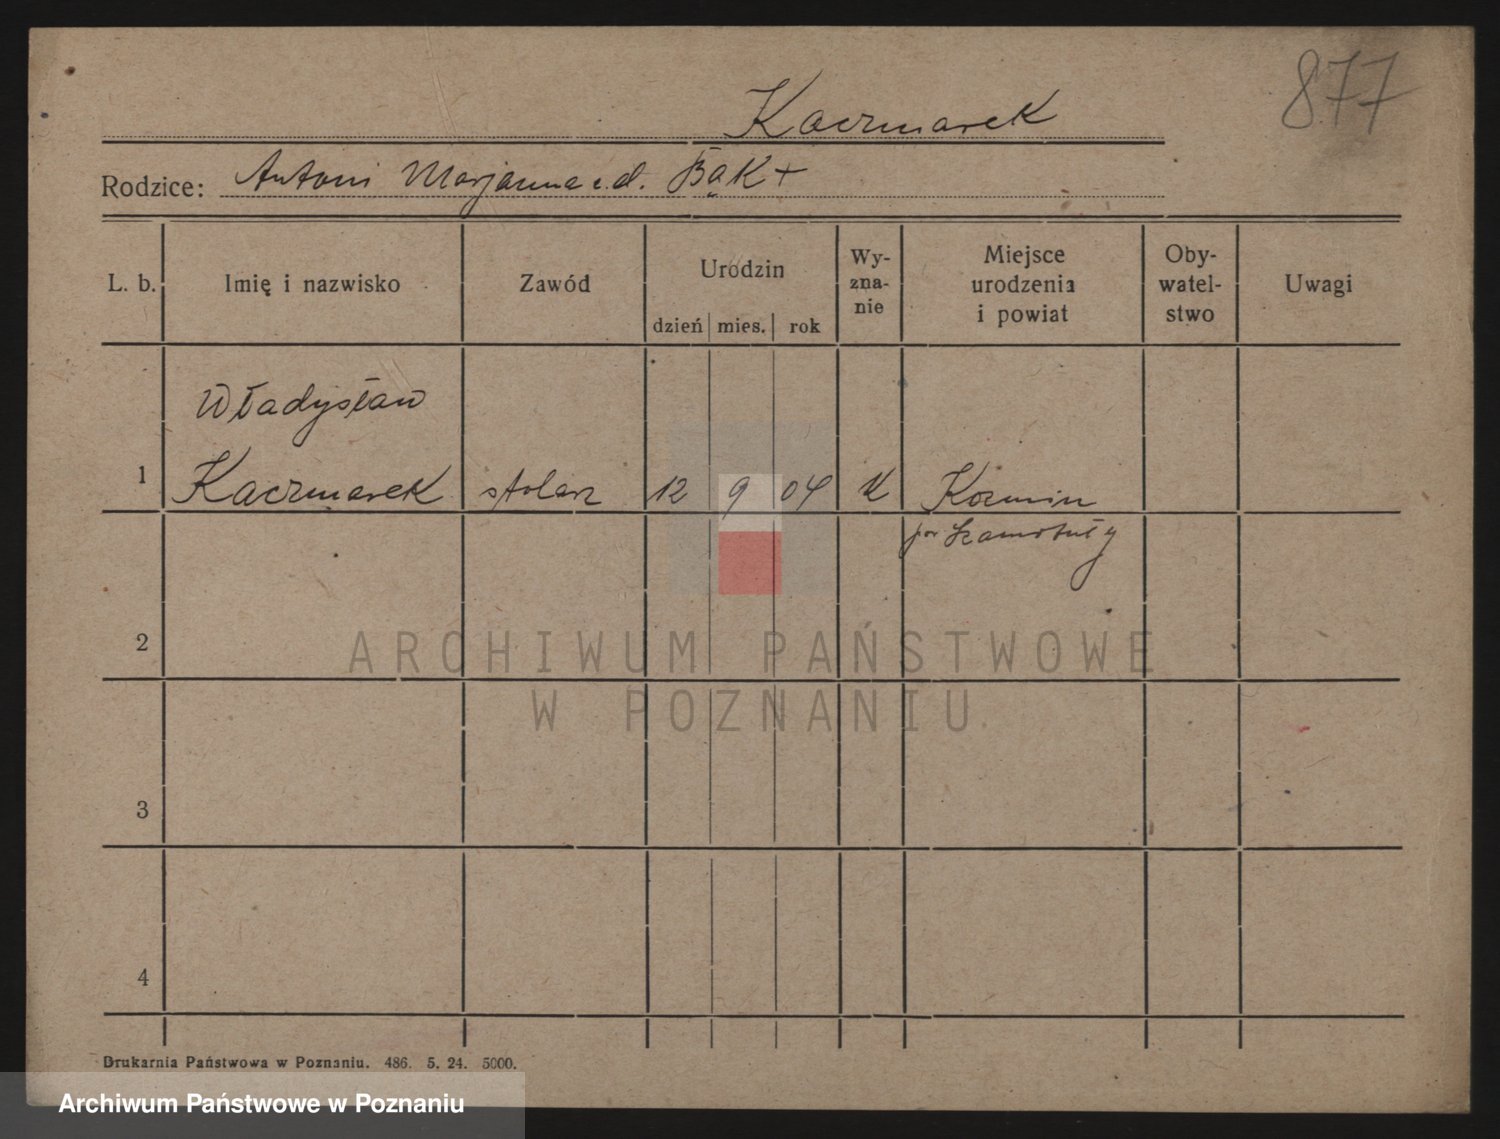 877
Kaczmarek
Rodzice: Antoni Marjanna z. d. Bąk +
L. b. Imię i nazwisko Zawód Urodzin Wy-zna-nie Miejsce urodzenia i powiat Oby-watel-stwo Uwagi
dzień mies. rok
Władysław
1 Kaczmarek stolarz 12 9 04 K Koźmin
pow Szamotuły
2
ARCHIWUM PAŃSTWOWE
W POZNANIU
3
4
Drukarnia Państwowa w Poznaniu. 486. 5. 24. 5000.
Archiwum Państwowe w Poznaniu